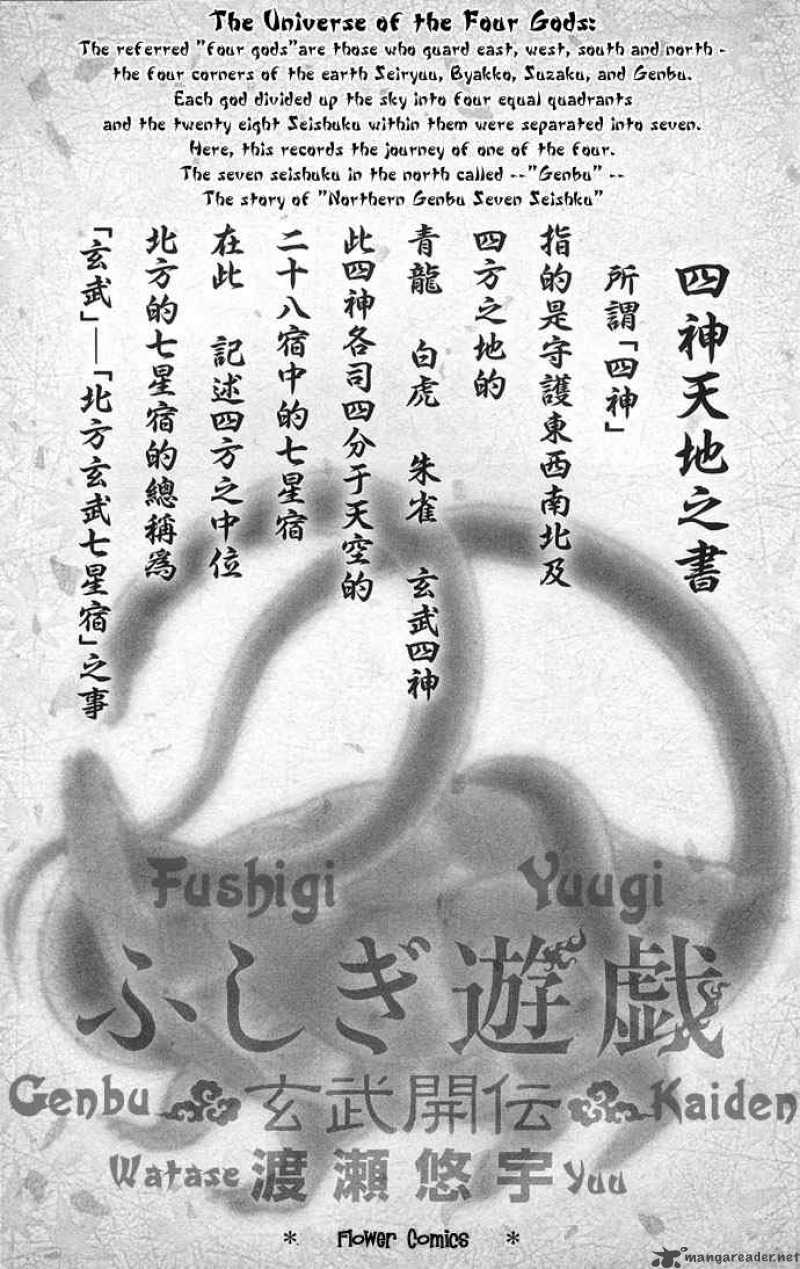 The Universe of the Four Gods:
The referred "four gods"are those who guard east, west, south and north -
the four corners of the earth Seiryuu, Byakko, Suzaku, and Genbu.
Each god divided up the sky into four equal quadrants
and the twenty eight Seishuku within them were separated into seven.
Here, this records the journey of one of the four.
The seven seishuku in the north called --"Genbu" --
The story of "Northern Genbu Seven Seishku"
四神天地之書
所謂「四神」
指的是守護東西南北及
四方之地的
青龍 白虎 朱雀 玄武四神
此四神各司四分于天空的
二十八宿中的七星宿
在此 記述四方之中位
北方的七星宿的總稱爲
「玄武」—「北方玄武七星宿」之事
Fushigi Yuugi
ふしぎ遊戯
Genbu 玄武開伝 Kaiden
Watase 渡瀬悠宇 Yuu
* Flower Comics *
mangareader.net